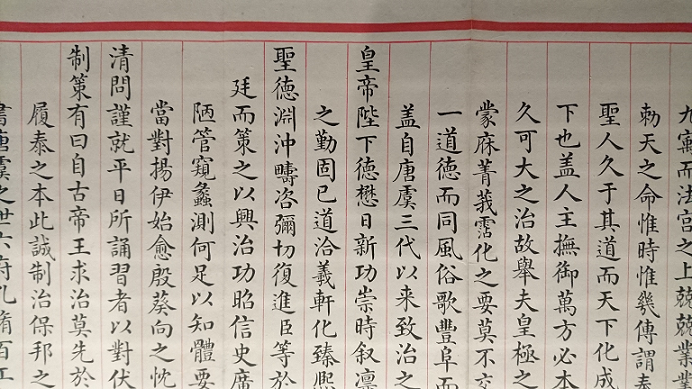 九寓而法宫之上兢兢業業
勅天之命惟時惟幾傳謂泰
聖人久于其道而天下化成
下也盖人主撫御萬方必本
久可大之治故舉夫皇極之
蒙庥菁莪霑化之要莫不交
一道德而同風俗歌豐阜而
盖自唐虞三代以来致治之
皇帝陛下德懋日新功崇時叙凛
之勤固已道洽羲軒化臻熙
聖德淵沖疇咨彌切復進臣等於
廷而策之以興治功昭信史席
陋管窺蠡測何足以知體要
當對揚伊始愈殷葵向之忱
清問謹就平日所誦習者以對伏
制策有曰自古帝王求治莫先於
履泰之本此誠制治保邦之
書唐虞之世六府孔脩百工